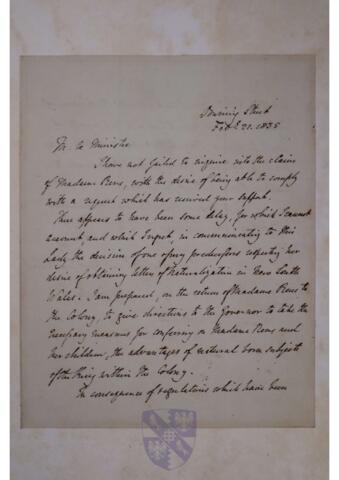 Downing Street
Feb.y 20. 1835
M. le Ministre
I have not failed to enquire into the claims
of Madame Rens, with the desire of being able to comply
with a request which has received your support.
There appears to have been some delay, for which I cannot
account, and which I regret, in communicating to this
Lady the decision of one of my predecessors respecting her
desire of obtaining letters of Naturalization in New South
Wales. I am prepared, on the return of Madame Rens to
the Colony, to give directions to the Governor to take the
necessary measures for conferring on Madame Rens and
her children, the advantages of natural born subjects
of the King within the Colony.
In consequence of regulations which have been